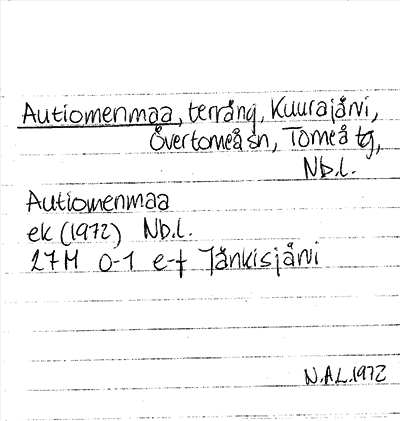 Autiomenmaa, terräng, Kuurajärvi,
Övertorneå sn, Torneå tg,
Nb.l.
Autiomenmaa
ek (1972) Nb.l.
27M 0-1 e-f Jänkisjärvi
N.A.L.1972